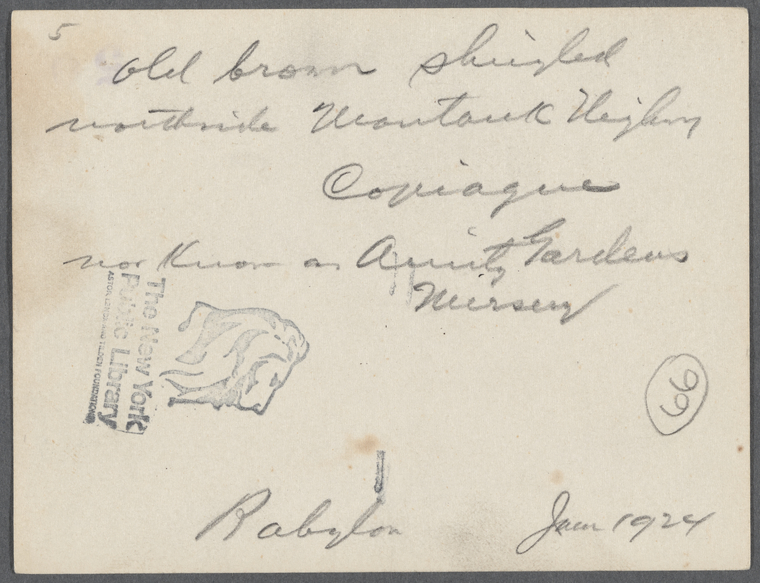 5
old brown shingled
northside Montauk Highwy
Copiague
now known as Amity Gardens
Nursery
The New York
Public Library
ASTOR, LENOX AND TILDEN FOUNDATIONS
66
Babylon Jan 1924